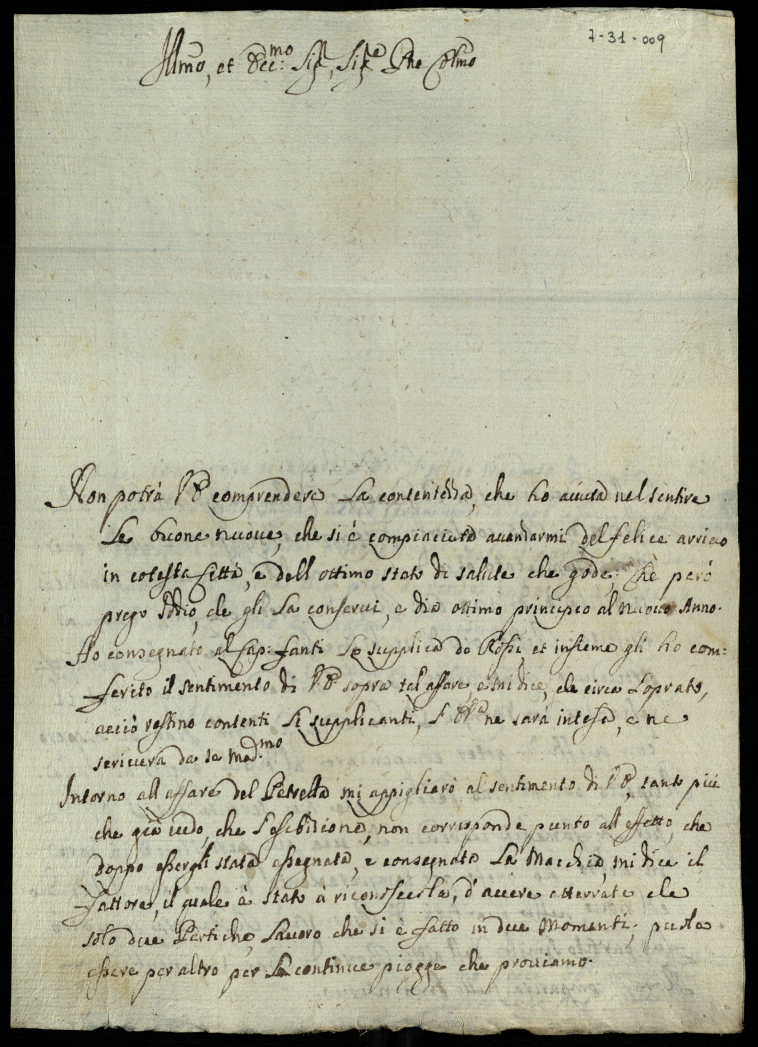 7-31-009
Illmo, et Ecc:mo Sigr, Sigr Pne Colmo
Non potrà VE comprendere La contentezza, che ho avuta nel sentire
Le buone nuove, che si è compiaciuta avanzarmi del felice arrivo
in cotesta Città, e dell ottimo stato di salute che gode; che però
prego Iddio, che gli La conservi, e dia ottimo principio al nuovo Anno.
Ho consegnato al Cap: Fanti La supplica de Rossi et insieme gli ho com=
ferito il sentimento di VE sopra tal affare e mi dice, che circa
acciò restino contenti Li supplicanti, ne sarà intesa, e ne
scriverà da se med.mo
Intorno all affare del Petrella mi appigliarò al sentimento di VE, tanto più
che già vedo, che l'esebizione, non corrisponde punto all effetto, che
doppo essergli stata assegnata, e consegnata La Macchia, mi dice il
Fattore, il quale è stato à riconoscerla, d'avere atterrate che
solo due Pertiche, Lavoro che si è fatto in due Momenti; puole
essere per altro per Le continue piogge che proviamo.